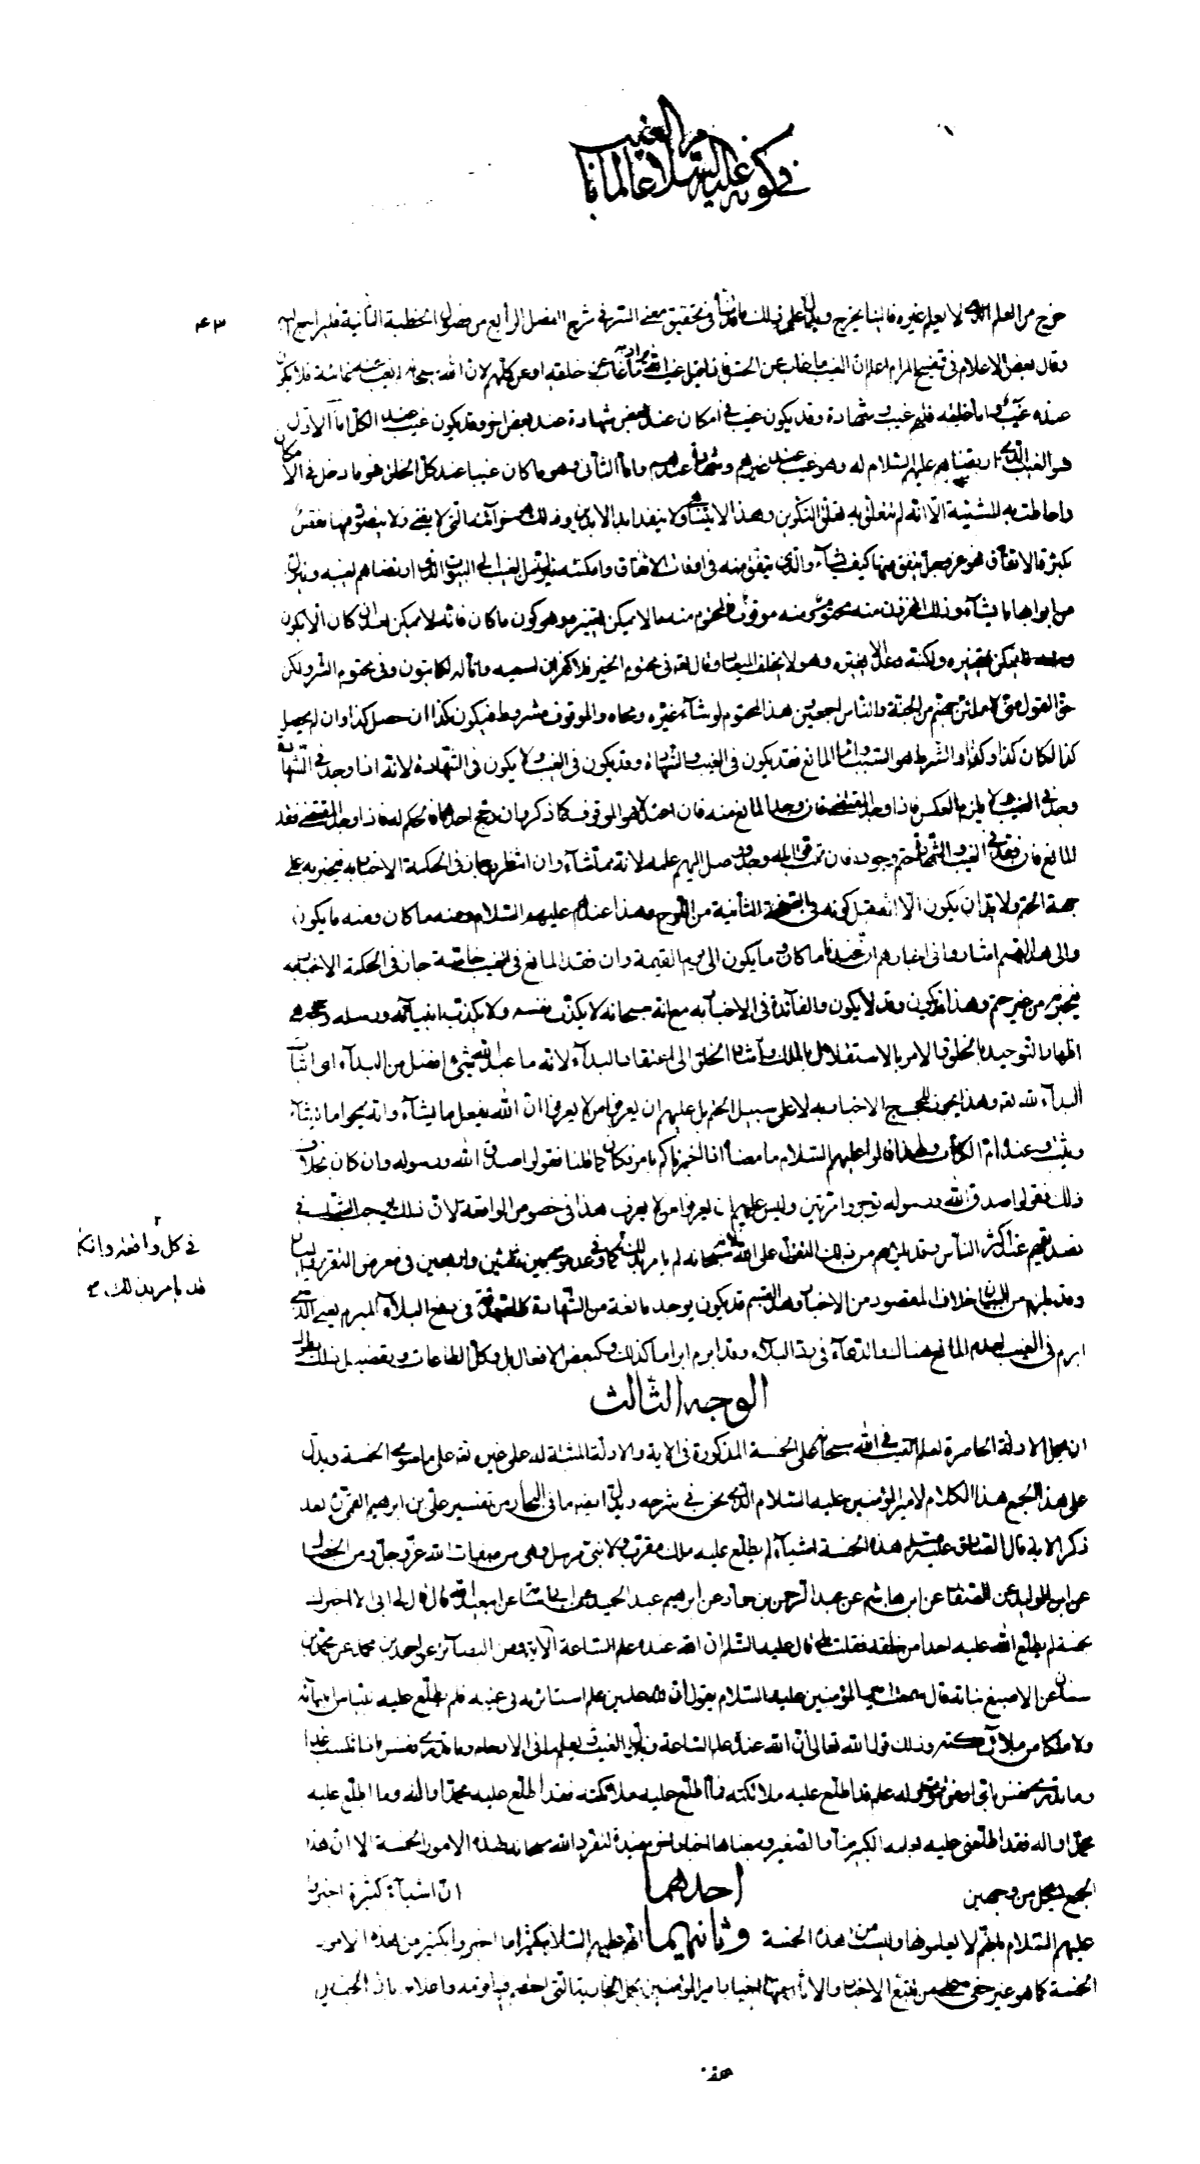 في كونه عليه السلام عالما بالغيب
خرج من العلم الذى لا يعلم غيره فاليا يخرج ويدل على ذلك ما قدمنا فى تحقيق معنى السر فى شرح الفصل الرابع من فصول الخطبة الثانية فليراجع اليه
۴۳
وقال بعض الاعلام فى تنقيح المرام اعلم ان الغيب ما غاب عن الحس فالمراد بغيب الله ما غاب عن خلقه او عن كلهم لان الله سبحانه لا يغيب عنه غائبة فلا يكون
عنده غيب واما خلقه فلهم غيب وشهادة وقد يكون غيب فى امكان عند بعض شهادة عند بعض اخر وقد يكون غيب عند الكل اما الاول
فهو الغيب الذى ارتضاهم عليهم السلام له وهو غيب عند غيرهم وشهادة عندهم واما الثانى وهو ما كان غيبا عند كل الخلق فهو ما دخل فى الامكان
واحاطت به المشية الا انه لم تتعلق به تعلق التكوين وهذا لا يتناهى ولا ينفد ابد الابدين وذلك هو خزائنه التى لا يفنى ولا يتصور فيها نقص
بكثرة الانفاق فهو عز وجل ينفق منها كيف يشاء والذى ينفق منه فى اوقات الانفاق وامكنته ينزل من الغيب الى البيوت الذى ارتضاهم لغيبه وينزل
من ابوابها ما يشاء وذلك المخزون منه محتوم ومنه موقوف فالمحتوم منه ما لا يمكن تغييره وهو كون ما كان فانه لا يمكن بعد ان كان الا يكون
ومنه ما يمكن تغييره ولكنه وعد الا يغيره وهو لا يخلف الميعاد وقال تعالى فى محتوم الخير فلا كفران لسعيه وانا له لكاتبون وفى محتوم الشر ولكن
حق القول منى لاملئن جهنم من الجنة والناس اجمعين هذا المحتوم لو شاء غيره ومحاه والموقوف مشروط فيكون كذا ان حصل كذا وان لم يحصل
كذا لكان كذا وكذا والشرط هو السبب واما المانع فقد يكون فى الغيب والشهادة وقد يكون فى الغيب ولا يكون فى الشهادة لانه اذا وجد فى الشهادة
وجد فى الغيب ولا يلزم العكس فاذا وجد المقتضى فان وجد المانع منه فان اعتدلا فهو الموقوف كما ذكر وان ترجح احدهما فالحكم له فاذا وجد المقتضى فقد
المانع فان فقد فى الغيب والشهادة حتم وجوده فان تمت قوابله وجد ووصل اليهم علمه لانه مما شاء وان انتظرها جاز فى الحكمة الاخبار به فيخبر به على
جهة الحتم ولا بد ان يكون الا انه قبل كونه فى الصفحة الثانية من اللوح وهذا عندهم عليهم السلام ومنه ما كان ومنه ما يكون
والى هذا القسم اشاروا فى اخبارهم ان عندنا ما كان وما يكون الى يوم القيمة وان فقد المانع فى الغيب خاصة جاز فى الحكمة الاخبار به
فيخبر من غير حتم وهذا قد يكون وقد لا يكون والفائدة فى الاخبار به مع انه سبحانه لا يكذب نفسه ولا يكذب انبيائه ورسله وحججه هى
اظهار التوحيد بالخلق والامر بالاستقلال بالملك وارشاد الخلق الى اعتقاد البداء لانه ما عبد الله بشئ افضل من البداء اى اثبات
البداء لله تعالى وهذا يجوز للحجج الاخبار به لا على سبيل الحتم بل عليهم ان يعرفوا من لا يعرف ان الله يفعل ما يشاء وانه يمحو ما يشاء
ويثبت وعنده ام الكتاب ولهذا قالوا عليهم السلام ما معناه انا اذا اخبرناكم بامر فكان كما قلنا فقولوا صدق الله ورسوله وان كان بخلاف
ذلك فقولوا صدق الله ورسوله توجروا مرتين وليس عليهم ان يعرفوا من لا يعرف هذا فى خصوص الواقعة لان ذلك يوجب الشك فى
تصديقهم عند اكثر الناس وقد يلزمهم من ذلك التقول على الله لانه سبحانه لم يامر بذلك نعم كما وعد موسى ثلثين واربعين فى معرض التقرير والبيان
في كل واقعة وانكا
قد يامر بذلك
وقد يلزمهم من البيان خلاف المقصود من الاخبار وهذا القسم قد يكون يوجد مانعه من الشهادة كالصدقة فى دفع البلاء المبرم يعنى الذى
ابرم فى الغيب لعدم المانع هنالك والدعاء فى رد البلاء وقد ابرم ابراما كذلك وكبعض الافعال بل وكل الطاعات وتفصيل ذلك يطول
الوجه الثالث
ان يحمل الادلة الحاصرة لعلم الغيب فى الله سبحانه على الخمسة المذكورة فى الاية والادلة المثبتة له على غيره تعالى على ما سوى الخمسة ويدل
على هذا الجمع هذا الكلام لامير المؤمنين عليه السلام الذى نحن فى شرحه ويدل ايضا ما فى البحار من تفسير على بن ابراهيم القمى بعد
ذكر الاية قال الصادق عليه السلام هذه الخمسة اشياء لم يطلع عليها ملك مقرب ولا نبى مرسل وهى من صفات الله عز وجل ومن الخصال
عن ابن الوليد عن الصفار عن ابن هاشم عن عبد الرحمن بن حماد عن ابراهيم عبد الحميد عن ابى اسامة عن ابى عبد الله قال قال لى ابى الا اخبرك
بخمسة لم يطلع الله عليه احدا من خلقه فقلت بلى قال عليه السلام ان الله عنده علم الساعة الآية ومن البصائر عن احمد بن محمد عن محمد بن
سنان عن الاصبغ نباتة قال سمعت امير المؤمنين عليه السلام يقول ان لله علمين علم استاثر به فى غيبه فلم يطلع عليه نبيا من انبيائه
ولا ملكا من ملائكته وذلك قول الله تعالى ان الله عنده علم الساعة وينزل الغيث ويعلم ما فى الارحام وما تدرى نفس ماذا تكسب غدا
وما تدرى نفس باى ارض تموت وله علم قد اطلع عليه ملائكته فما اطلع عليه ملائكته فقد اطلع عليه محمدا واله وما اطلع عليه
محمدا واله فقد اطلعنى عليه يعلمه الكبير منا والصغير وبمعناها اخبار اخر مفيدة لتفرد الله سبحانه بهذه الامور الخمسة الا ان هذا
الجمع يشكل من وجهين احدهما ان اشياء كثيرة اخبروا
عليهم السلام بانهم لا يعلمونها وليست من هذه الخمسة وثانيهما انهم عليهم السلام كثيرا ما اخبروا بكثير من هذه الامور
الخمسة كما هو غير خفى على من تتبع الاخبار والاثار منها اخبار امير المؤمنين
هذه